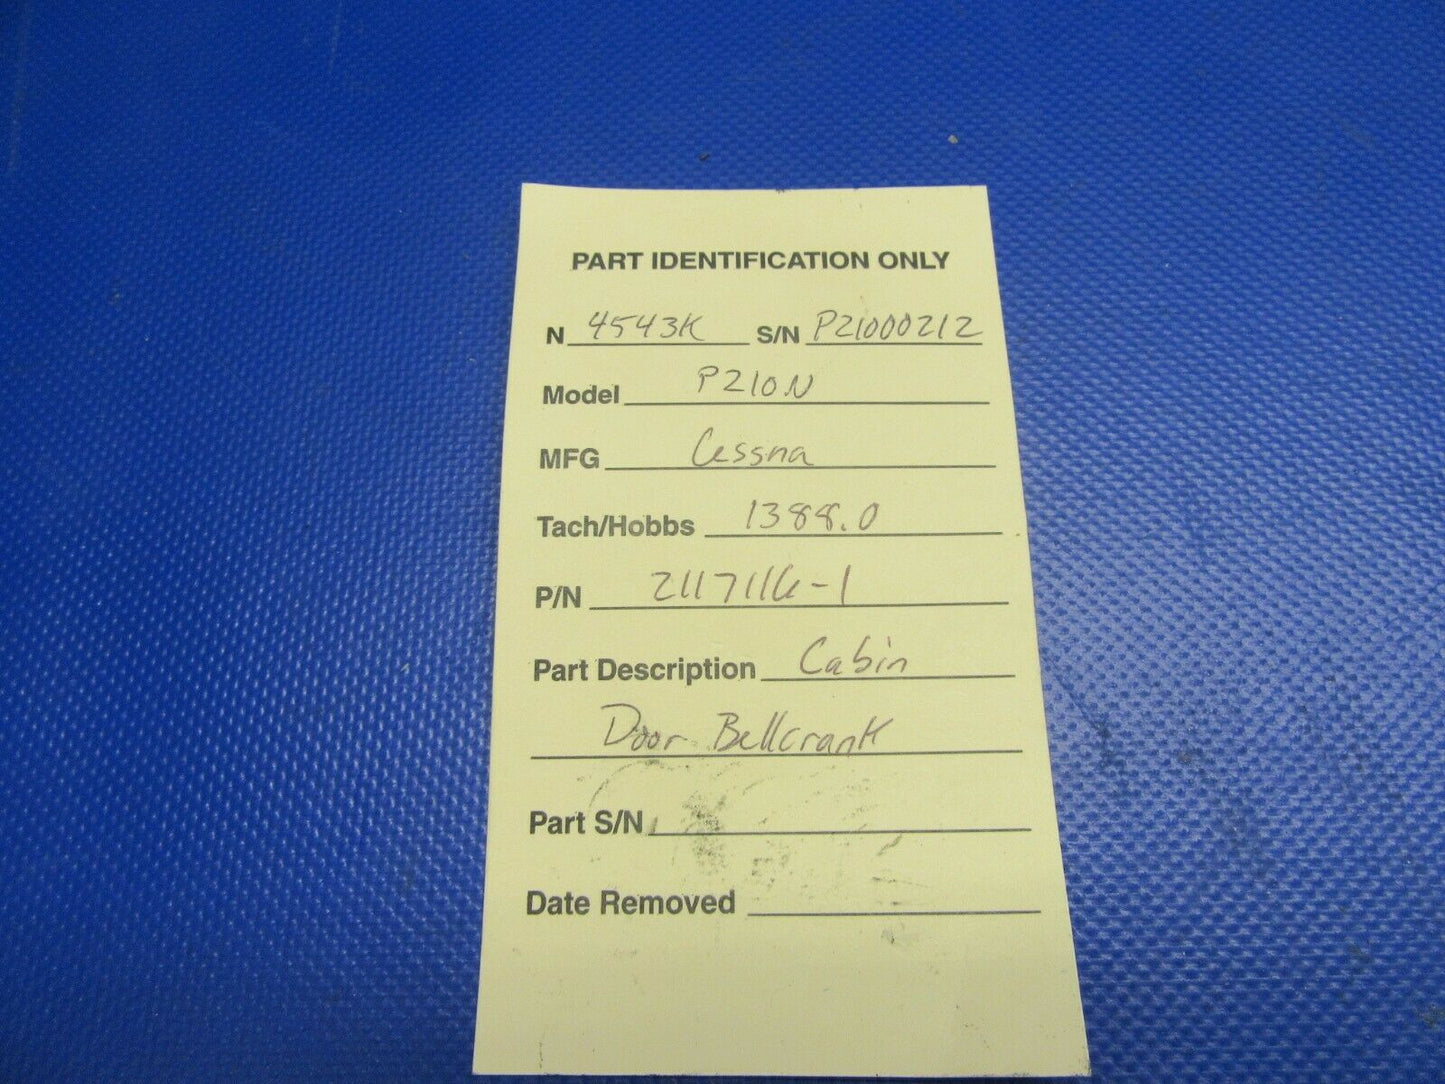 PART IDENTIFICATION ONLY
N 4543K S/N P21000212
Model P210N
MFG Cessna
Tach/Hobbs 1388.0
P/N 2117116-1
Part Description Cabin
Door Bellcrank
Part S/N
Date Removed